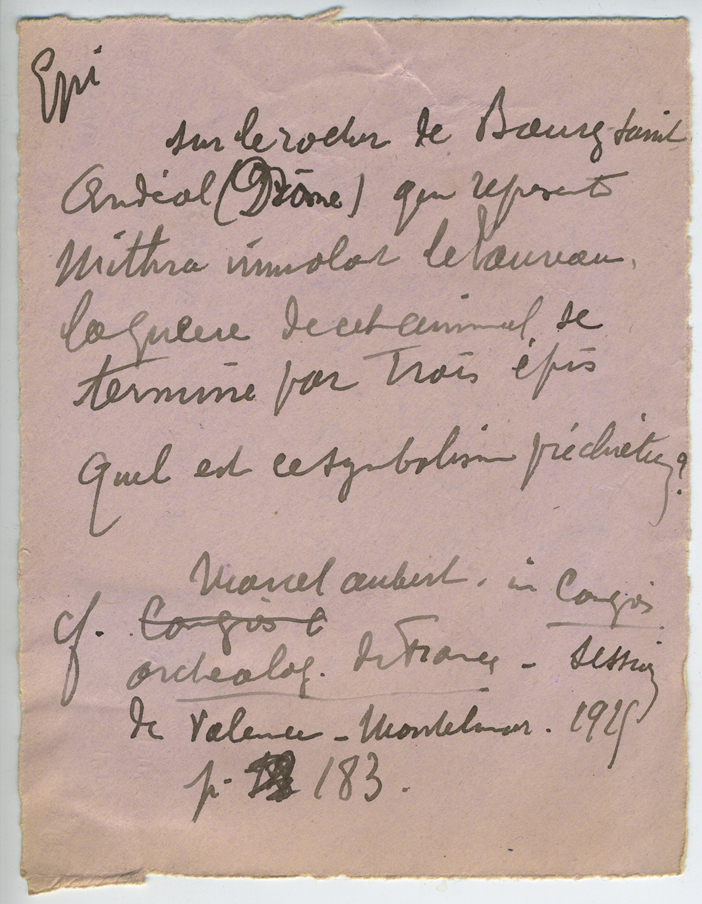 Epi
sur le rocher de Bourg Saint
Andéol (Drôme) qui représente
Mithra immolant le Taureau,
la queue de cet animal se
termine par Trois épis
Quel est ce symbolisme préchrétien ?
Marcel Aubert. in Congrès
cf. Congrès
archéolog. de France - Session
de Valence - Montélimar. 1925
p. 183.